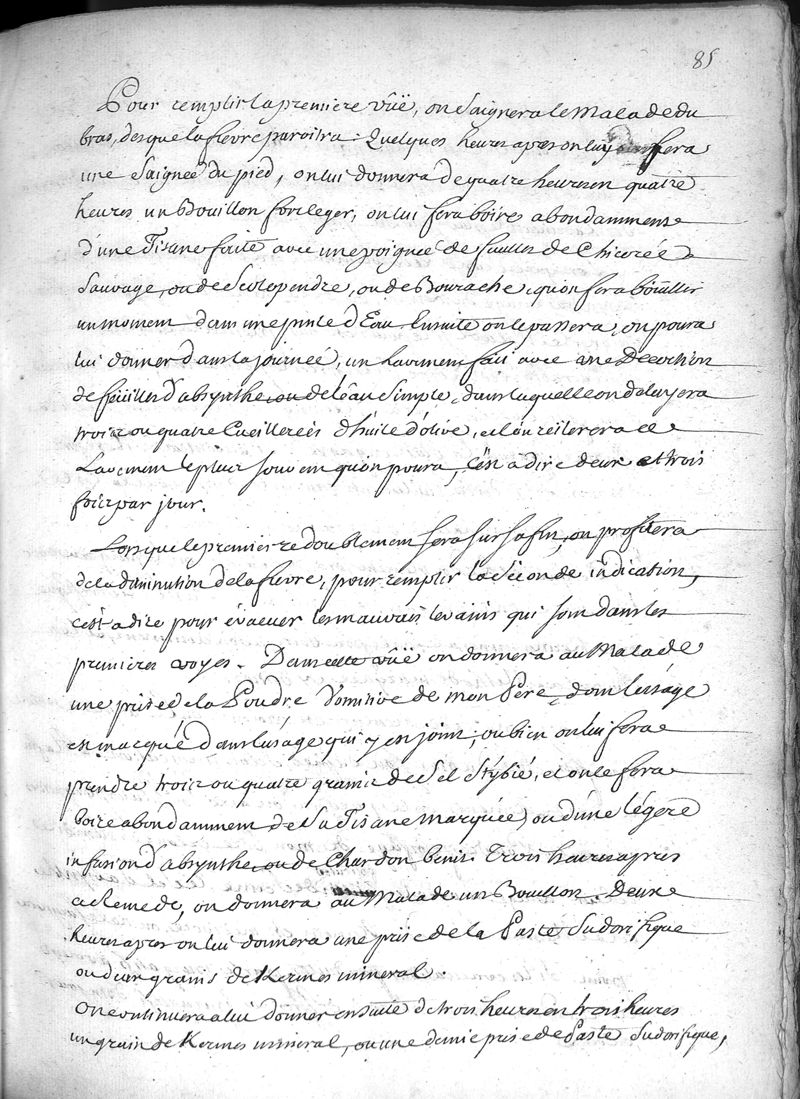 85
Pour remplir la premiere vûë, on Saignera le Malade du
bras, des que la fievre paroitra. Quelques heures apres on luy fera
une Saignée du pied, on lui donnera de quatre heures en quatre
heures un Bouillon fort leger, on lui fera boire abondamment
d'une Tisane faite avec une poignée de feuilles de Chicorée
Sauvage, ou de Scolopendre, ou de Bourache, qu'on fera boüillir
un moment dans une pinte d'Eau. Ensuite on le passera, on poura
lui donner dans la journée, un Lavement fait avec une Decoction
de feüilles d'absynthe, ou de l'eau Simple, dans laquelle on delayera
trois ou quatre Cueillereés d'huile d'olive, et l'on reiterera ce
Lavement le plus souvent qu'on poura, c'est a dire deux et trois
fois par jour.
Lorsque le premier redoublement sera sur sa fin, on profitera
de la diminution de la fievre, pour remplir la Seconde indication,
c'est a dire pour évacuer les mauvais levains qui sont dans les
premieres voyes. Dans cette vûë on donnera au Malade
une prise de la Poudre Vomitive de mon Pere, dont l'usage
est marqué dans l'usage qui y est joint, ou bien on lui fera
prendre trois ou quatre grains de Sel Stybié, et on le fera
boire abondamment de Sa Tisane marquée, ou d'une légere
infusion d'absynthe, ou de Chardon benit. Trois heures apres
ce Remede, on donnera au Malade un Bouillon. Deux
heures apres on lui donnera une prise de la Paste Sudorifique
ou deux grains de Kermes mineral.
On continuera a lui donner ensuite de trois heures en trois heures
un grain de Kermes mineral, ou une demie prise de Paste Sudorifique,